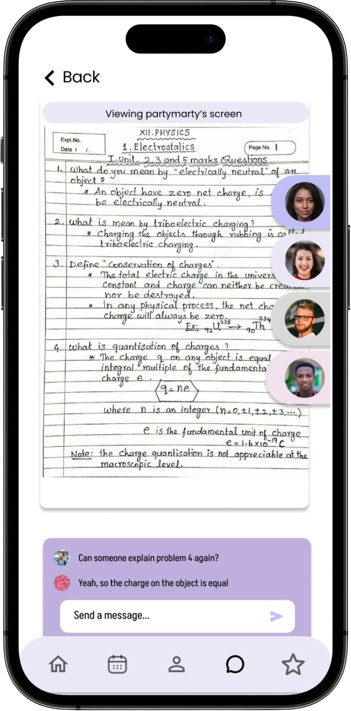 Back
Viewing partymarty's screen
Expt.No.
Date / /.
XII. PHYSICS
1. Electrostatics
Page No. 1
I. Unit 2,3 and 5 marks Questions
1. What do you mean by "electrically neutral" of an
object?
* An object have zero net charge, is
be electrically neutral.
2. What is mean by triboelectric charging?
* Charging the objects through rubbing is
triboelectric charging.
3. Define "Conservation of charges".
* The total electric charge in the
constant and charge can neither be
nor be destroyed.
* In any physical process, the net
charge will always be zero.
Ex: ₉₂U²³⁸ → ₉₀Th²³⁴
4. What is quantisation of charges?
* The charge q on any object is equal
integral multiple of the
charge e.
q = ne
where n is an integer (n=0,±1,±2,±3,...)
e is the fundamental unit of charge
e = 1.6×10⁻¹⁹ C
Note: the charge quantisation is not appreciable at the
macroscopic level.
Can someone explain problem 4 again?
Yeah, so the charge on the object is equal
Send a message...